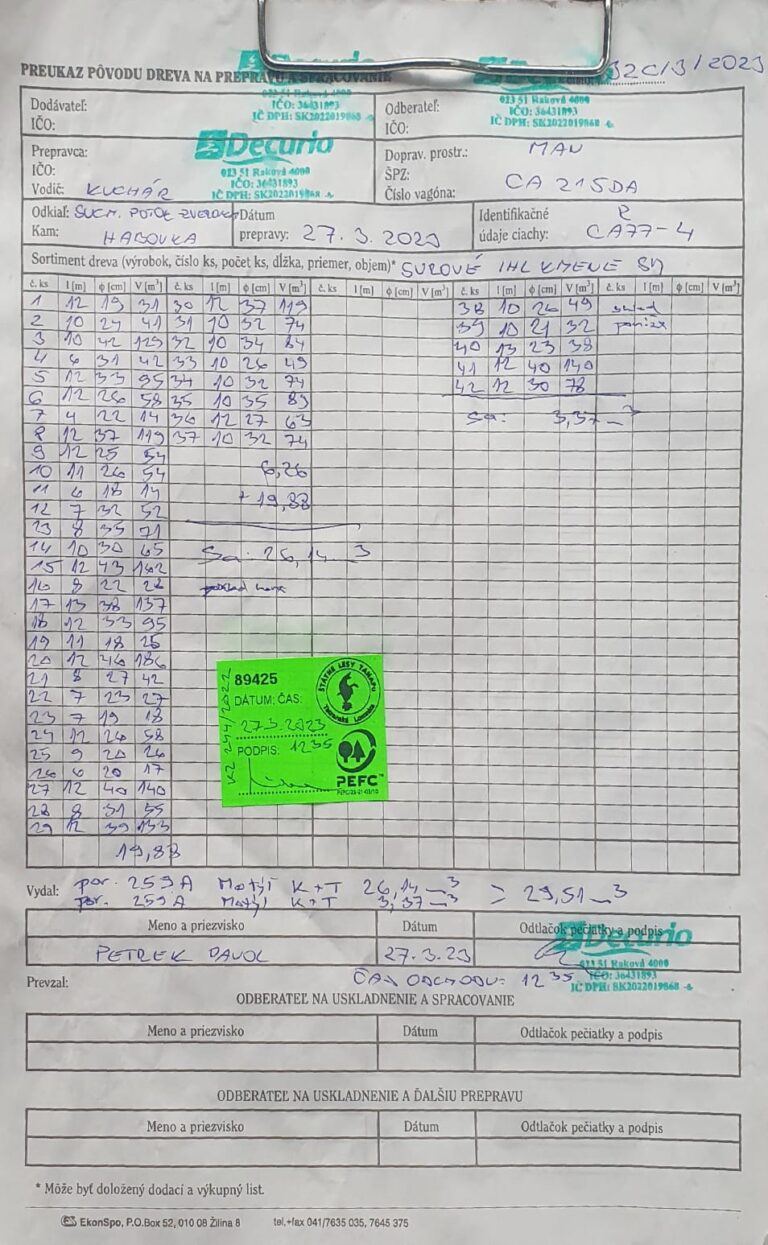 PREUKAZ PÔVODU DREVA NA PREPRAVU A SPRACOVANIE 32C/3/2023
Decurio
023 51 Raková 4000
IČO: 36431893
IČ DPH: SK2022019868
023 51 Raková 4000
IČO: 36431893
IČ DPH: SK2022019868
Dodávateľ:
IČO:
Odberateľ:
IČO:
Prepravca:
IČO:
Vodič: KUCHÁR
Decurio
023 51 Raková 4000
IČO: 36431893
IČ DPH: SK2022019868
Doprav. prostr.: MAN
ŠPZ:
Číslo vagóna: CA 215DA
Odkiaľ: SUCH. POTOK
Kam: HABOVKA
Dátum
prepravy: 27. 3. 2023
Identifikačné R
údaje ciachy: CA77-4
Sortiment dreva (výrobok, číslo ks, počet ks, dĺžka, priemer, objem)* SUROVÉ IHL KMENE SM
č. ks l [m] ϕ [cm] V [m³] č. ks l [m] ϕ [cm] V [m³] č. ks l [m] ϕ [cm] V [m³] č. ks l [m] ϕ [cm] V [m³] č. ks l [m] ϕ [cm] V [m³]
1 12 19 31 30 12 37 119 38 10 26 49 sklad
2 10 24 41 31 10 32 74 39 10 21 32
3 10 42 129 32 10 34 84 40 13 23 38
4 6 31 42 33 10 26 49 41 12 40 140
5 12 33 95 34 10 32 74 42 12 30 78
6 12 26 58 35 10 35 89
7 4 22 14 36 12 27 63 Sa: 3,37 m3
8 12 37 119 37 10 32 74
9 12 25 54
10 11 26 54 6,26
11 6 18 14 + 19,88
12 7 32 52
13 8 35 71
14 10 30 65 Sa: 26,14 m3
15 12 43 162
16 8 22 28
17 13 38 137
18 12 33 95
19 11 18 25
20 12 46 186
21 8 27 42
22 7 23 27
23 7 19 18
24 12 26 58
25 9 20 26
26 6 20 17
27 12 40 140
28 8 31 55
29 12 39 133
19,88
VZ 254/2022
89425
DÁTUM: ČAS:
27.3.2023
PODPIS: 1235
ŠTÁTNE LESY TANAPU
Tatranská Lomnica
PEFC™
Vydal: por. 259A Motýľ K+T 26,14 m3 > 29,51 m3
por. 259A Motýľ K+T 3,37 m3
Meno a priezvisko Dátum Odtlačok pečiatky a podpis
PETREK PAVOL 27.3.23
Decurio
023 51 Raková 4000
IČO: 36431893
IČ DPH: SK2022019868
Prevzal: ČAS ODCHODU: 12 35
ODBERATEĽ NA USKLADNENIE A SPRACOVANIE
Meno a priezvisko Dátum Odtlačok pečiatky a podpis
ODBERATEĽ NA USKLADNENIE A ĎALŠIU PREPRAVU
Meno a priezvisko Dátum Odtlačok pečiatky a podpis
* Môže byť doložený dodací a výkupný list.
EkonSpo, P.O.Box 52, 010 08 Žilina 8 tel.+fax 041/7635 035, 7645 375